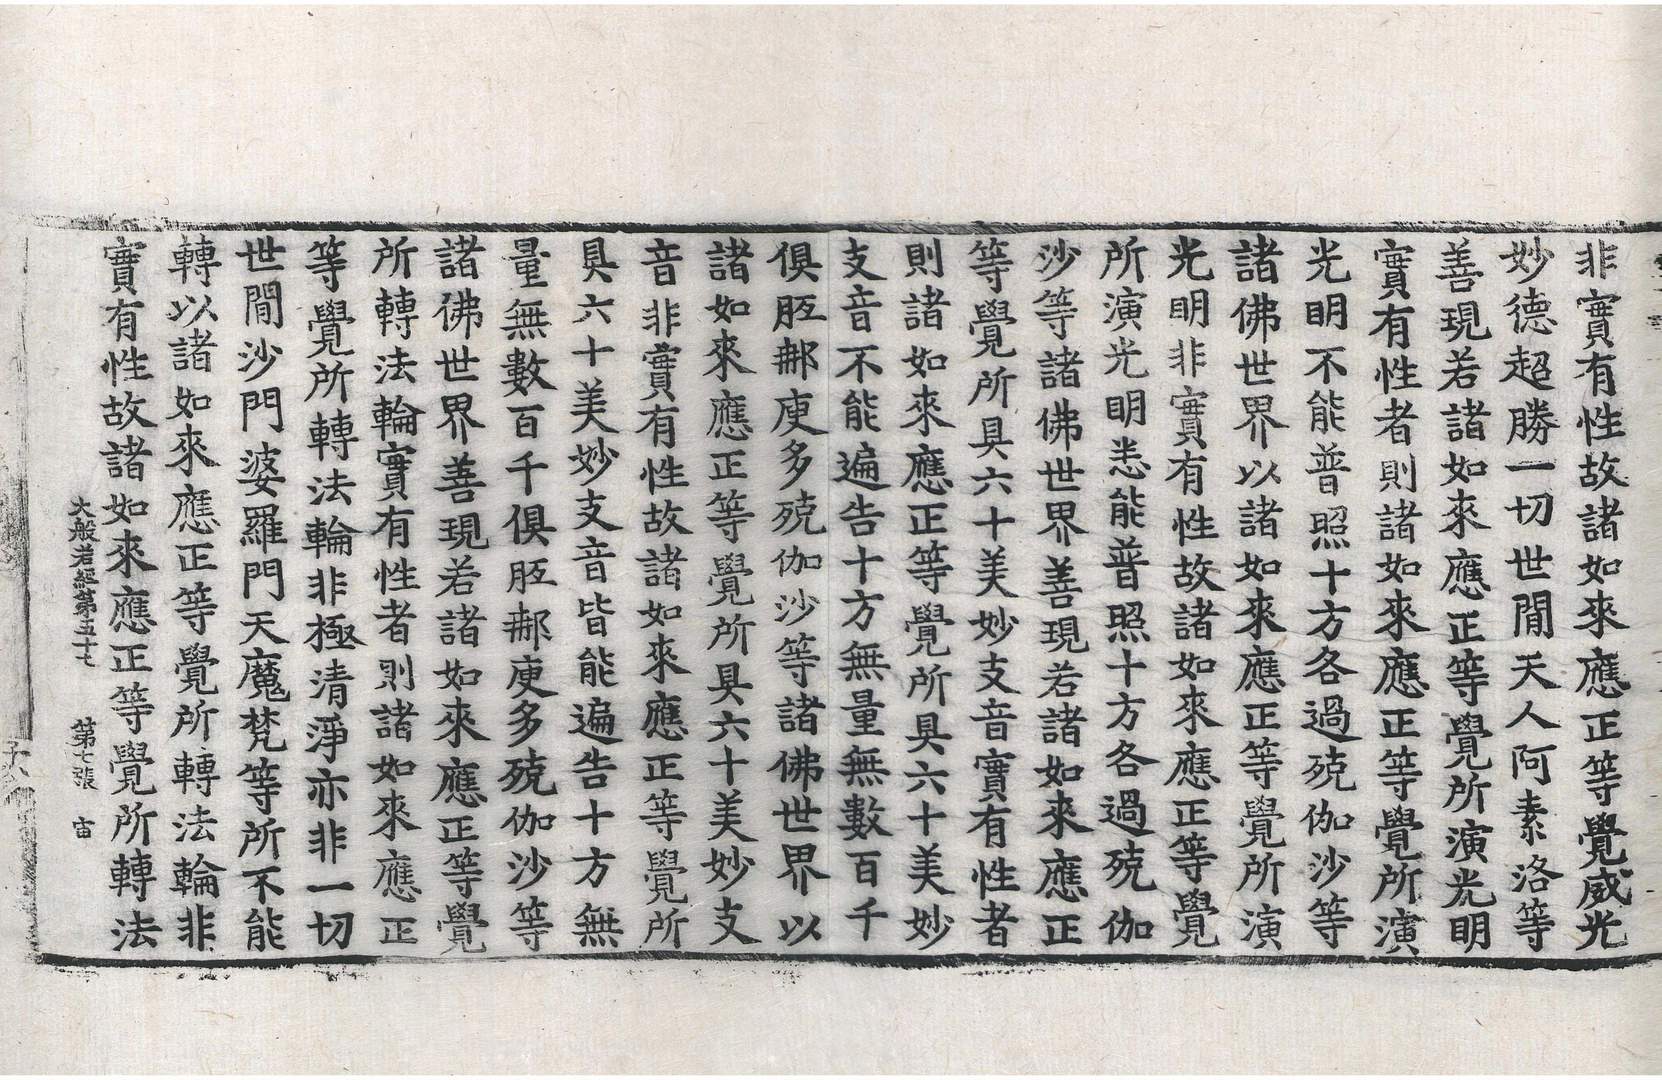 非實有性故諸如來應正等覺威光
妙德超勝一切世間天人阿素洛等
善現若諸如來應正等覺所演光明
實有性者則諸如來應正等覺所演
光明不能普照十方各過殑伽沙等
諸佛世界以諸如來應正等覺所演
光明非實有性故諸如來應正等覺
所演光明悉能普照十方各過殑伽
沙等諸佛世界善現若諸如來應正
等覺所具六十美妙支音實有性者
則諸如來應正等覺所具六十美妙
支音不能遍告十方無量無數百千
俱胝那庾多殑伽沙等諸佛世界以
諸如來應正等覺所具六十美妙支
音非實有性故諸如來應正等覺所
具六十美妙支音皆能遍告十方無
量無數百千俱胝那庾多殑伽沙等
諸佛世界善現若諸如來應正等覺
所轉法輪實有性者則諸如來應正
等覺所轉法輪非極清淨亦非一切
世間沙門婆羅門天魔梵等所不能
轉以諸如來應正等覺所轉法輪非
實有性故諸如來應正等覺所轉法
大般若經第五十七 第七張 宙